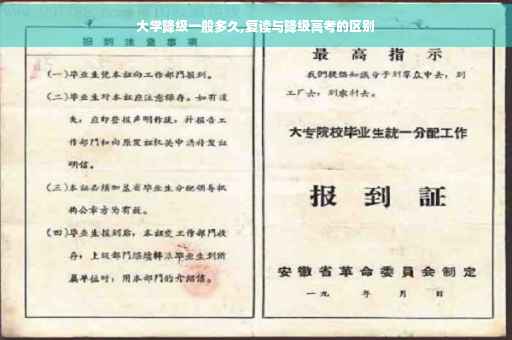 大学降级一般多久,复读与降级高考的区别
报到注意事项
(一)毕业生凭本证向工作部门报到。
(二)毕业生对本证应注意保存。如有遗
失,应即登报声明作废,并报告工
作部门和向原发证机关申请补发证
明信。
(三)本证必须加盖省毕业生分配领导机
构公章方为有效。
(四)毕业生报到后,本证交工作部门收
存;上级部门
毕业生到所
属单位时,用本部门的介绍信。
最高指示
我们提倡知识分子到群众中去,到
工厂去,到农村去。
大专院校毕业生统一分配工作
报到証
安徽省革命委員会制定
一九 年 月 日